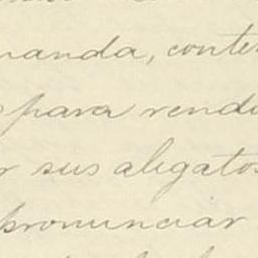 manda, conte
para rendi
r sus alegatos
pronunciar